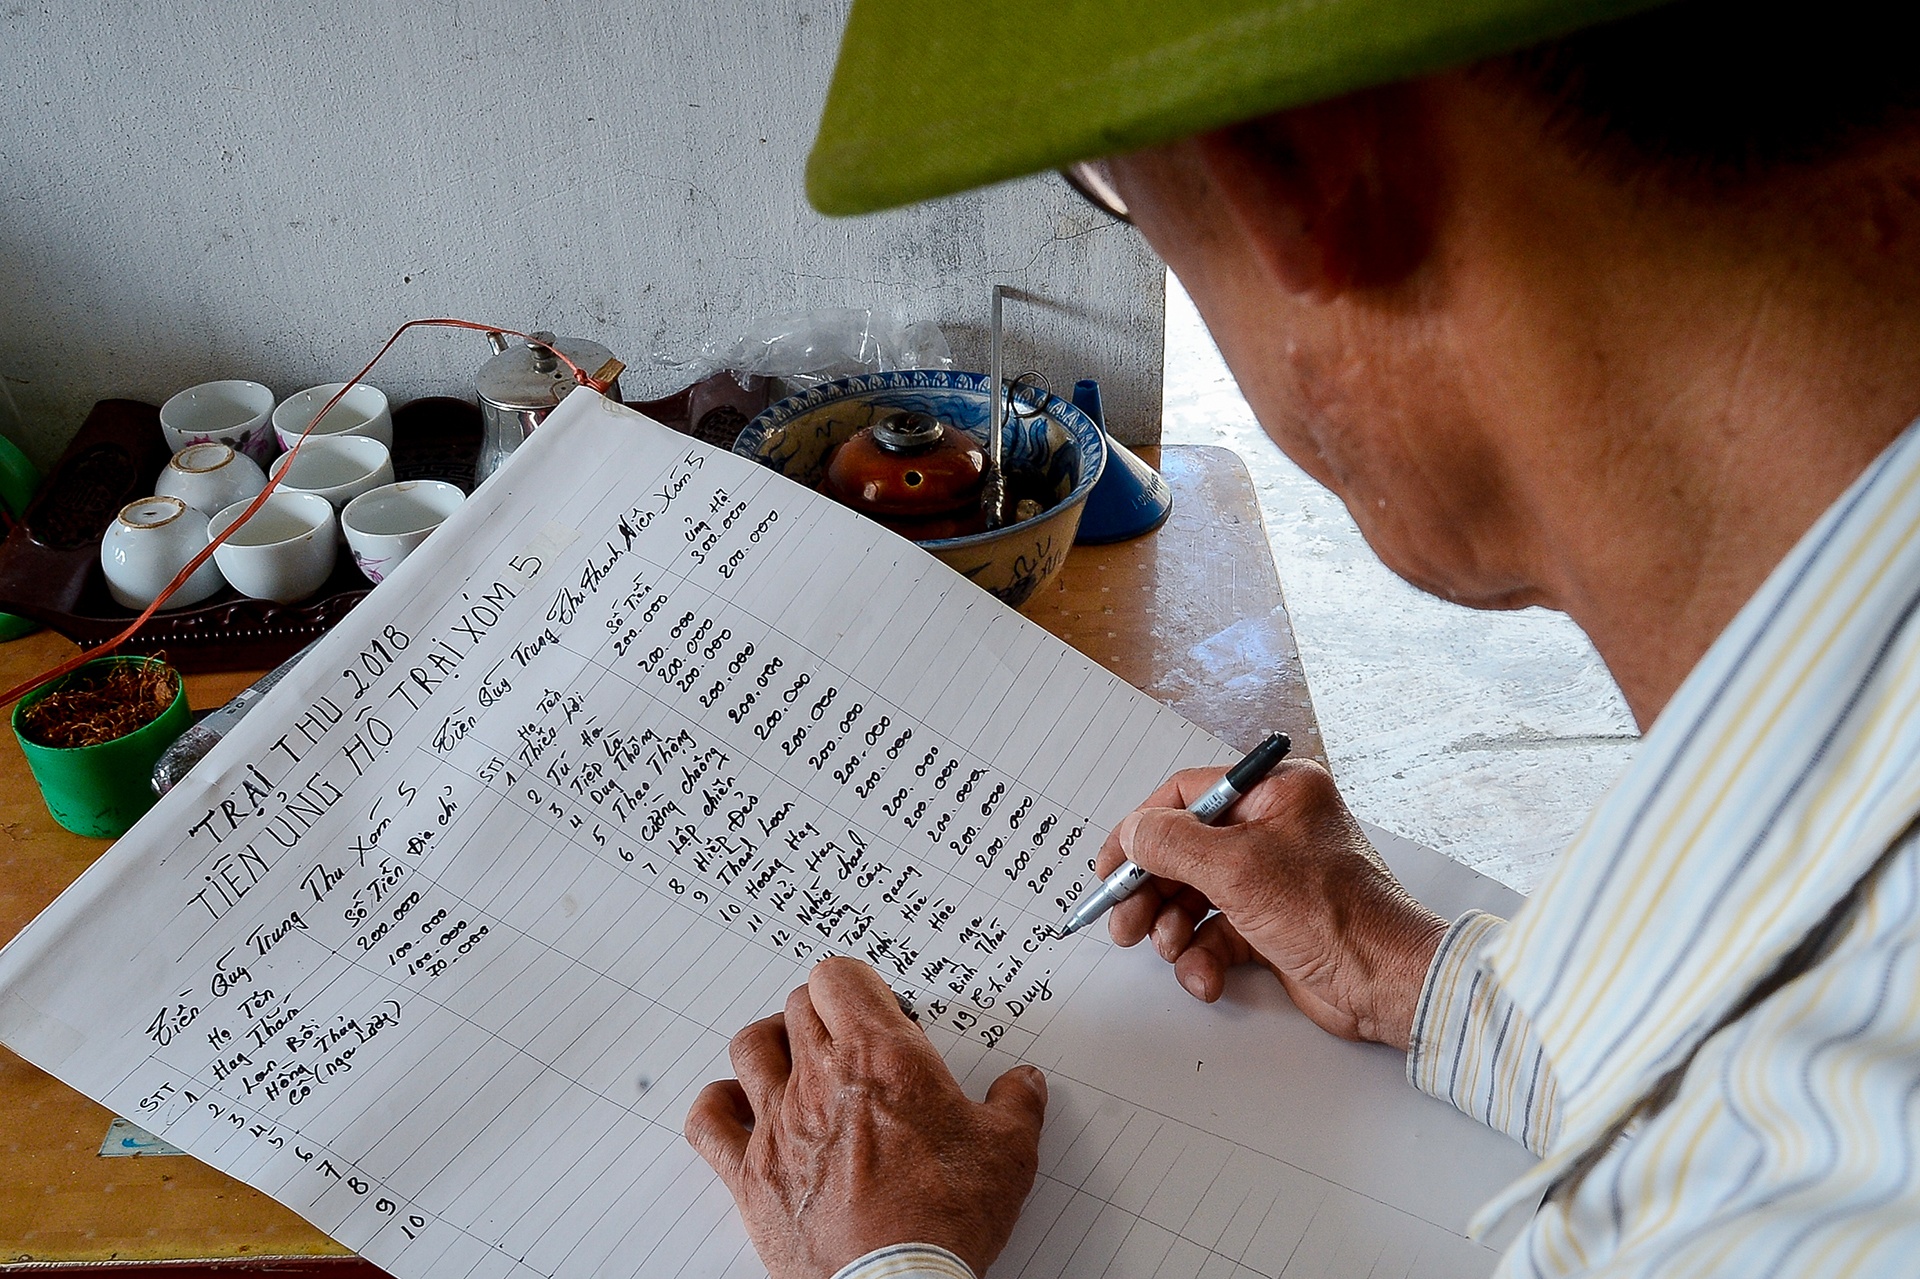 TRẠI THU 2018
TIỀN ỦNG HỘ TRẠI XÓM 5
Tiền Qũy Trung Thu Xóm 5
STT Họ Tên Số Tiền Địa chỉ
1 Hay Thắm 200.000
2 Lan Bôi 100.000
3 Hồng Thủy 100.000
4 Cô (nga Lưỡng) 70.000
5
6
7
8
9
10
Tiền Qũy Trung Thu Thanh Niên Xóm 5
STT Họ Tên Số Tiền Ủng Hộ
1 Thiên Lợi 200.000 300.000
2 Tú Hà 200.000
3 Tiệp La 200.000
4 Duy Thông 200.000
5 Thao Thông 200.000
6 Cường chuông 200.000
7 Lập chiên 200.000
8 Hiệp Đào 200.000
9 Thanh Loan 200.000
10 Hoàng Hay 200.000
11 Hải Hay 200.000
12 Nghĩa chanh 200.000
13 Bằng Cây 200.000
Tuấn quang 200.000
Nghị Hòe 200.000
Hân Hòe 200.000
Hưng nga 200.000
18 Bình Thái 200.000
19 Thành Cây 200.0
20 Duy